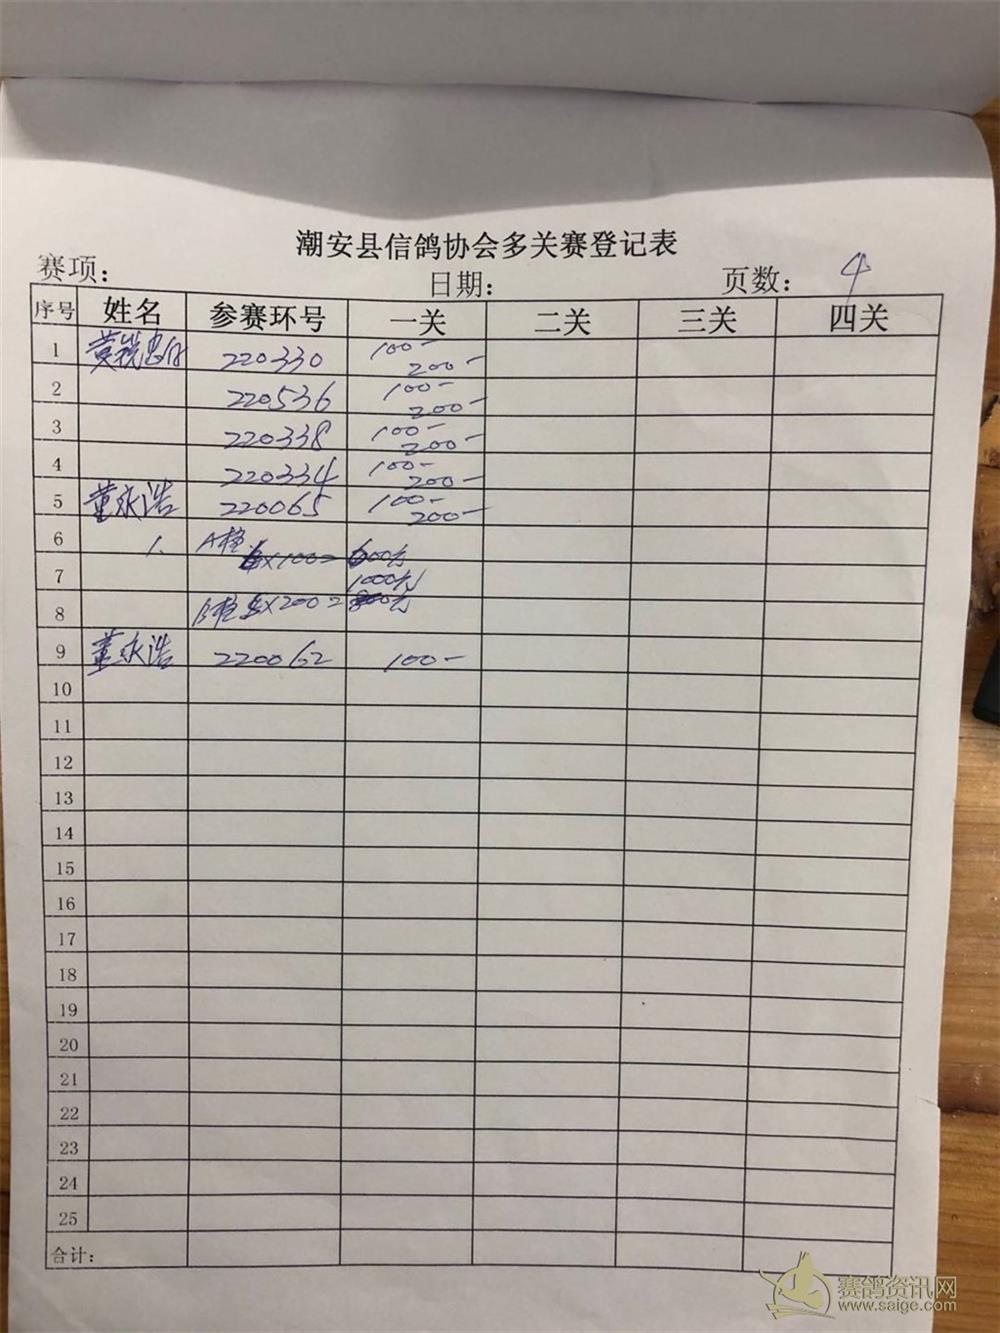 潮安县信鸽协会多关赛登记表
赛项: 日期: 页数: 4
序号 姓名 参赛环号 一关 二关 三关 四关
1 220330 100- 200-
2 220536 100- 200-
3 220338 100- 200-
4 220334 100- 200-
5 董永浩 220065 100- 200-
6 1. A ×100= 600元
7 1000元
8 B ×200= 元
9 董永浩 220062 100-
10
11
12
13
14
15
16
17
18
19
20
21
22
23
24
25
合计:
赛鸽资讯网
www.saige.com